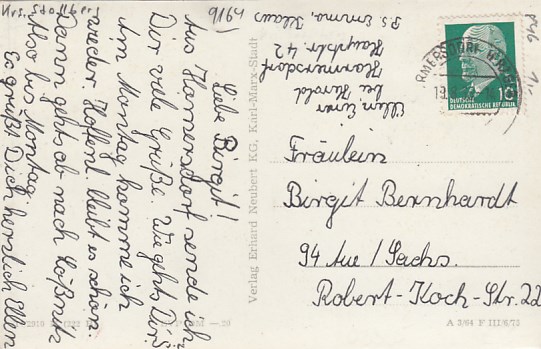 Krs. Stollberg
(9164)
Liebe Birgit!
Aus Hormersdorf sende ich
Dir viele Grüße. Wie gehts Dir?
Am Montag komme ich
wieder. Hoffentl. bleibt es schön.
Dann gehts ab nach Lößnitz
Also bis Montag
Es grüßt Dich herzlich Ellen
P.S. Emma, Klaus
Ellen
bei Harold
Hormersdorf
Hauptstr. 42
Verlag Erhard Neubert KG, Karl-Marx-Stadt
DEUTSCHE
DEMOKRATISCHE REPUBLIK
10
Fräulein
Birgit Bernhardt
94 Aue / Sachs.
Robert-Koch-Str. 22
A 3/64 F III/6/75